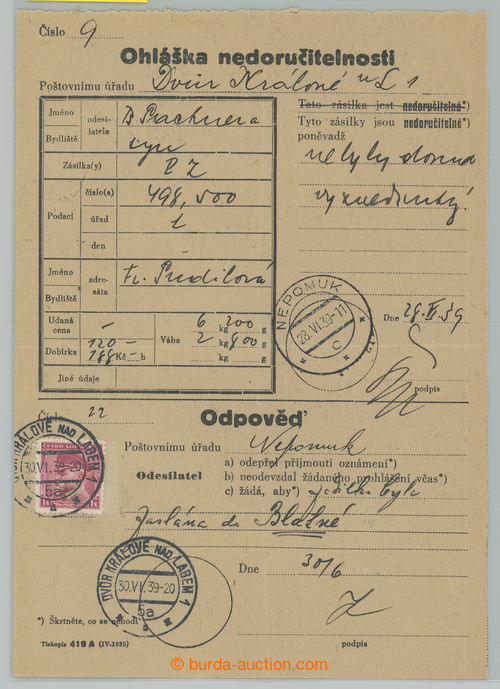 Číslo 9
Ohláška nedoručitelnosti
Poštovnímu úřadu Dvůr Králové n/L 1
Tato zásilka jest nedoručitelná*)
Tyto zásilky jsou nedoručitelné*)
poněvadž
nebyly dosud
vyzvednuty.
Jméno
Bydliště
odesi-
latele
syn
Zásilka(y)
Podací
číslo(a) 498, 500
úřad 1
den
Jméno
Bydliště
adre-
sáta
Fr. Pudilová
Udaná
cena
Dobírka
120-
188 Kč - h
Váha
6 kg 200 g
2 kg 800 g
Jiné údaje
NEPOMUK
28.VI.39-11
C
Dne 28.VI.39
podpis
Číslo 22
Odpověď
Poštovnímu úřadu Nepomuk
Odesilatel
a) odepřel přijmouti oznámení*)
b) neodevzdal žádaného prohlášení včas*)
c) žádá, aby*)
do Blatné
ČESKO-SLO
DVŮR KRÁLOVÉ NAD LABEM 1
30.VI.39-20
5a
DVŮR KRÁLOVÉ NAD LABEM 1
30.VI.39-20
5a
Dne 30/6
*) Škrtněte, co se nehodí
Tiskopis 419 A (IV-1935)
podpis
burda-auction.com